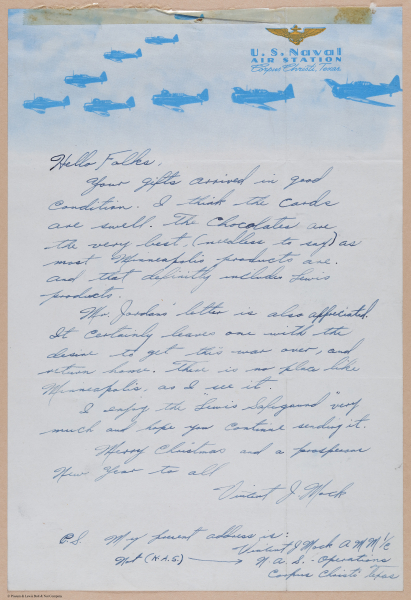 U.S. Naval
AIR STATION
Corpus Christi, Texas
Hello Folks,
Your gifts arrived in good
condition. I think the cards
are swell. The Chocolates are
the very best, (needless, to say) as
most Minneapolis products are.
and that definitly includes Lewis
products.
Mr. Jordans' letter is also appreciated.
It certainly leaves one with the
desire to get this war over, and
return home. There is no place like
Minneapolis, as I see it.
I enjoy the "Lewis Safeguard" very
much and hope you continue sending it.
Merry Christmas and a prosperous
New Year to all
Vincent J Mock
P.S. My present address is:
Vincent J Mock A M M 1/c
Not (N.A.S) → N.A.S. - Operations
Corpus Christi Texas